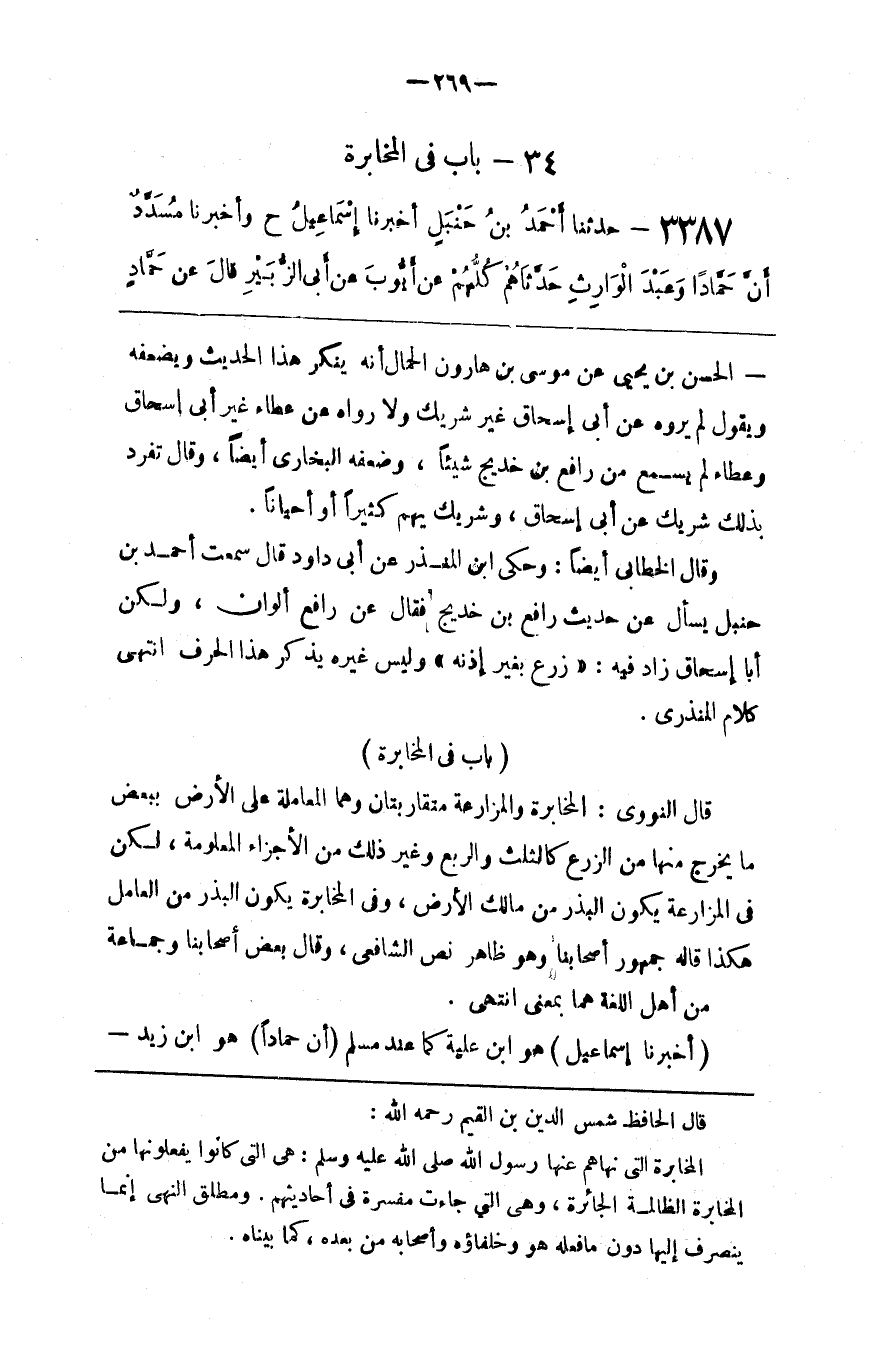 —٢٦٩—
٣٤ — باب فى المخابرة
٣٣٨٧ — حدثنا أَحْمَدُ بنُ حَنْبَلٍ أخبرنا إِسْمَاعِيلُ ح وأخبرنا مُسَدَّدٌ
أَنَّ حَمَّادًا وَعَبْدَ الْوَارِثِ حَدَّثَاهُمْ كُلُّهُمْ عن أَيُّوبَ عن أَبى الزُّبَيْرِ قالَ عن حَمَّادٍ
— الحسن بن يحيى عن موسى بن هارون الحمال أنه ينكر هذا الحديث ويضعفه
ويقول لم يروه عن أبى إسحاق غير شريك ولا رواه عن عطاء غير أبى إسحاق
وعطاء لم يسمع من رافع بن خديج شيئاً ، وضعفه البخارى أيضاً ، وقال تفرد
بذلك شريك عن أبى إسحاق ، وشريك يهم كثيراً أو أحياناً .
وقال الخطابى أيضاً : وحكى ابن المنذر عن أبى داود قال سمعت أحمد بن
حنبل يسأل عن حديث رافع بن خديج فقال عن رافع ألوان ، ولكن
أبا إسحاق زاد فيه : « زرع بغير إذنه » وليس غيره يذكر هذا الحرف انتهى
كلام المنذرى .
( باب فى المخابرة )
قال النووى : المخابرة والمزارعة متقاربتان وهما المعاملة على الأرض ببعض
ما يخرج منها من الزرع كالثلث والربع وغير ذلك من الأجزاء المعلومة ، لكن
فى المزارعة يكون البذر من مالك الأرض ، وفى المخابرة يكون البذر من العامل
هكذا قاله جمهور أصحابنا وهو ظاهر نص الشافعى ، وقال بعض أصحابنا وجماعة
من أهل اللغة هما بمعنى انتهى .
( أخبرنا إسماعيل ) هو ابن علية كما عند مسلم (أن حماداً) هو ابن زيد —
قال الحافظ شمس الدين بن القيم رحمه الله :
المخابرة التى نهاهم عنها رسول الله صلى الله عليه وسلم : هى التى كانوا يفعلونها من
المخابرة الظالمة الجائرة ، وهى التي جاءت مفسرة فى أحاديثهم . ومطلق النهى إنما
ينصرف إليها دون مافعله هو وخلفاؤه وأصحابه من بعده ، كما بيناه .